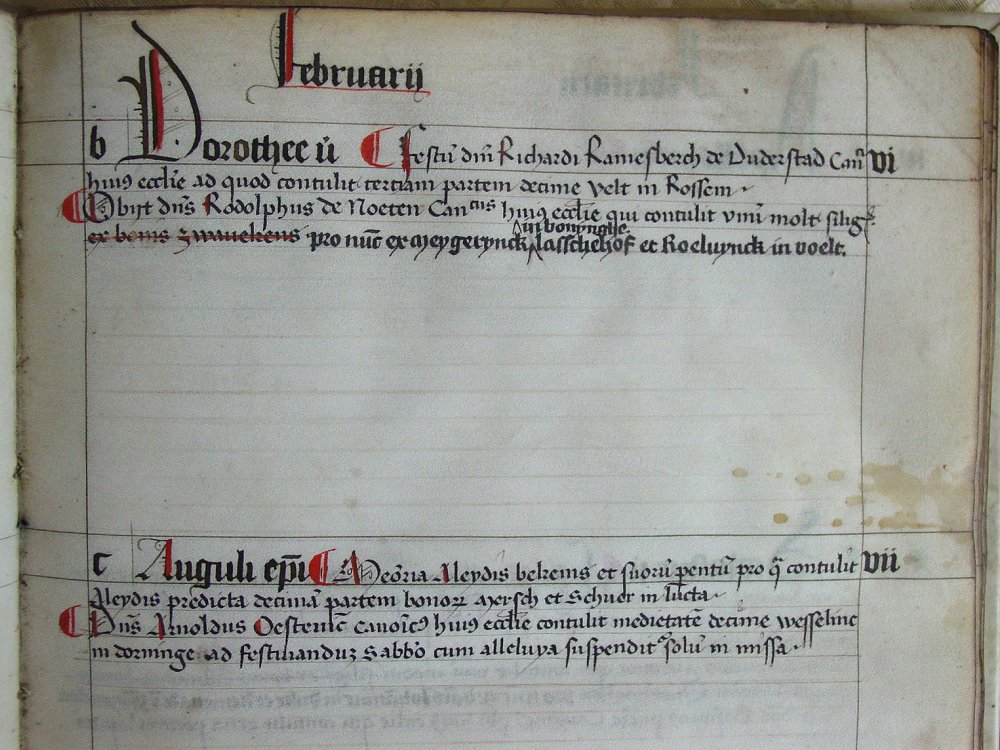 Februarij
b Dorothee v̄ Festū dm̄ Richardi Ramesberch de Duderstad Can̄ vi
huiꝰ eccl̄ie ad quod contulit terciam partem decime velt in Rossem
Obijt dn̄s Rodolphus de Noeten Canᶜᵘˢ huiꝰ eccl̄ie qui contulit vnū molt siliḡ
in bonynghe
ex bonis zwauekens pro nūc ex Meygerynck lasschehof et Roeluynck in voelt.
c Auguli epī Meōria Aleydis bekems et suorū parentū pro q̄ contulit vii
Aleydis predicta decimā partem bonoꝝ Mersch et Schuer in lucta
Dn̄s Arnoldus Oesterwic̄ canoīcꝰ huiꝰ eccl̄ie contulit medietatē decime wesseline
in dorninge ad festiuanduꝫ Sabb̄o cum alleluya suspendit᷑ solū in missa